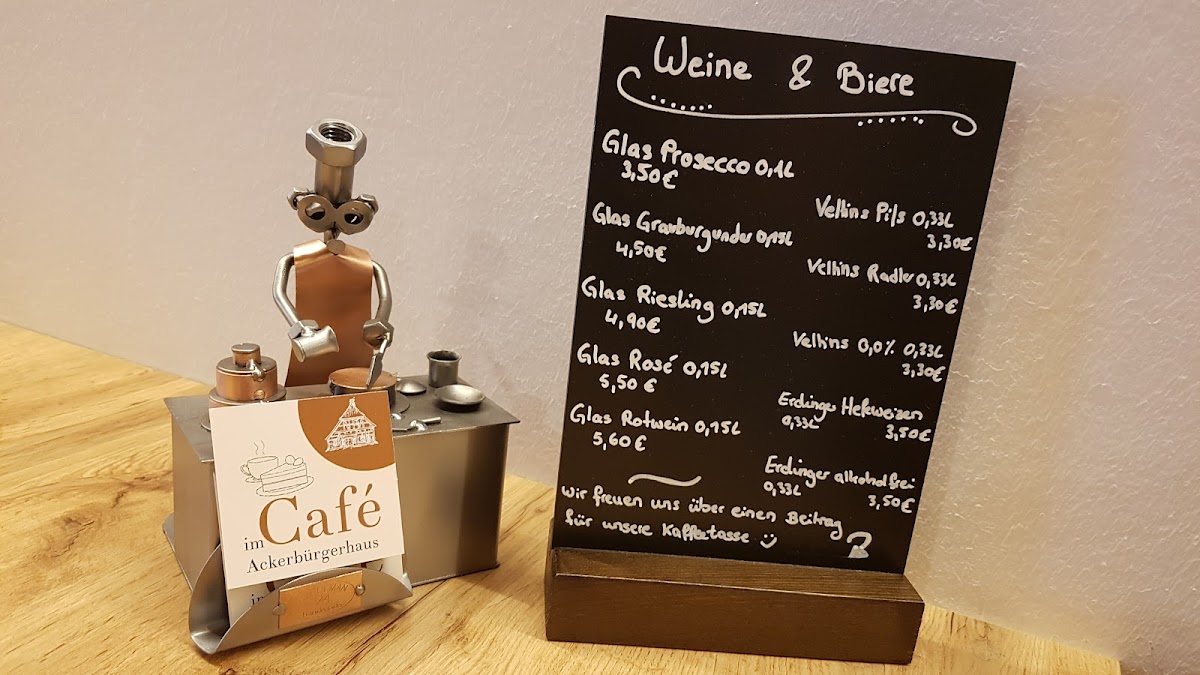 Weine & Biere
Glas Prosecco 0,1L
3,50€
Glas Grauburgunder 0,15L
4,50€
Glas Riesling 0,15L
4,90€
Glas Rosé 0,15L
5,50 €
Glas Rotwein 0,15L
5,60€
Veltins Pils 0,33L
3,30€
Veltins Radler 0,33L
3,30€
Veltins 0,0% 0,33L
3,30€
Erdinger Hefeweizen
0,33L 3,50€
Erdinger alkoholfrei
0,33L 3,50€
Wir freuen uns über einen Beitrag
für unsere Kaffeetasse
Café
im
Ackerbürgerhaus